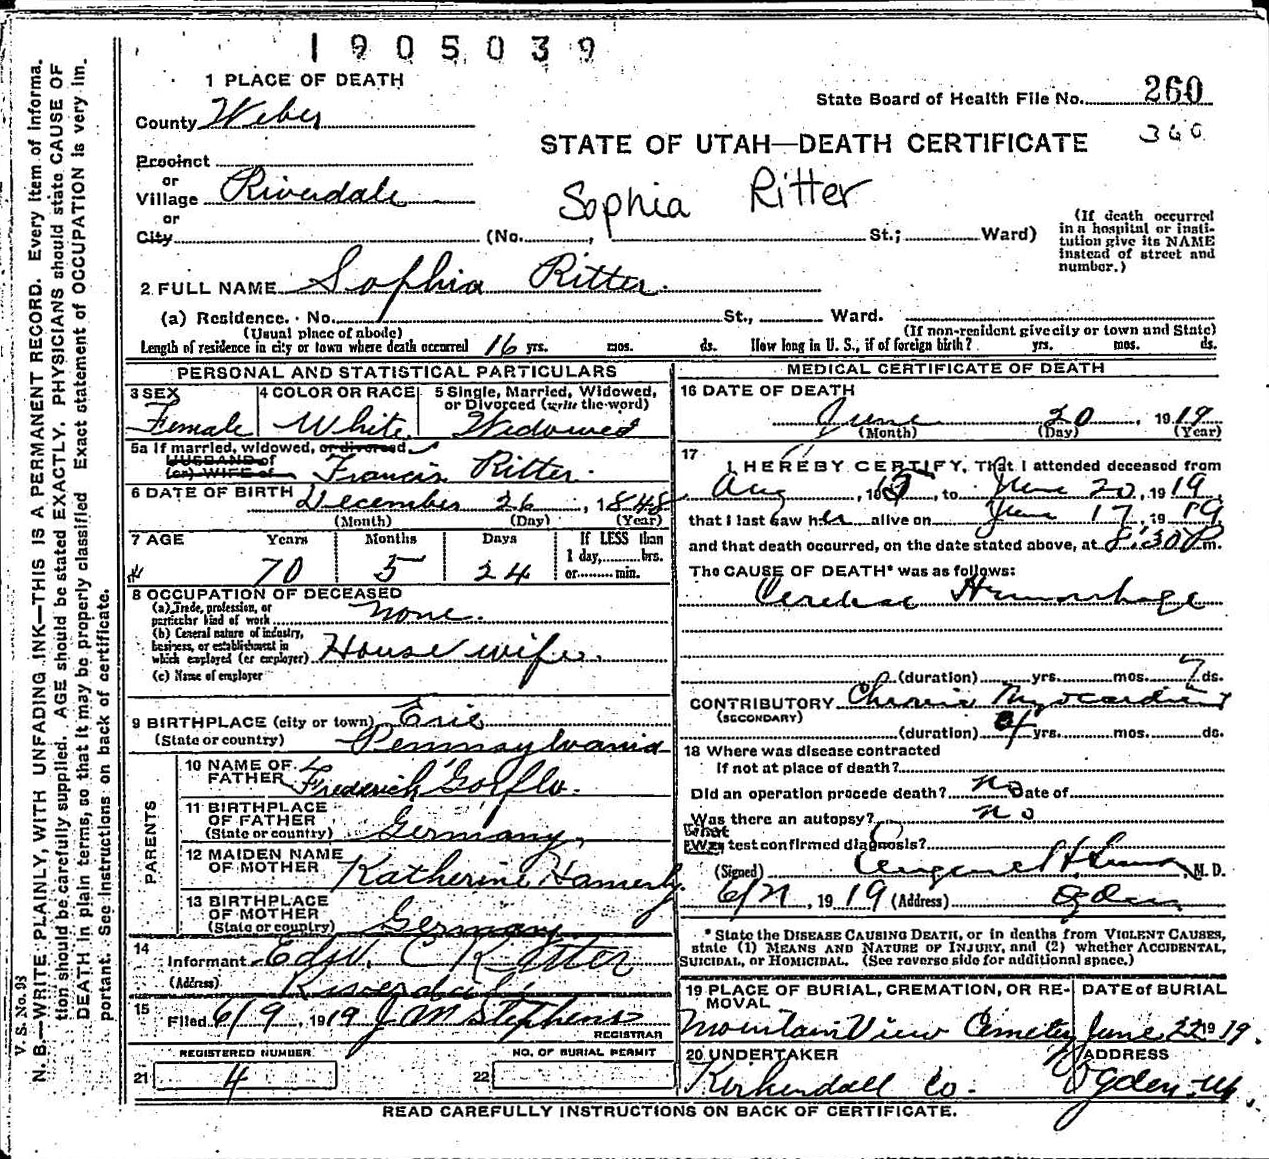 1905039
1 PLACE OF DEATH
State Board of Health File No. 260
360
County Weber
STATE OF UTAH—DEATH CERTIFICATE
Precinct
or
Village Riverdale
Sophia Ritter
or
City (No. , St.; Ward)
(If death occurred
in a hospital or insti-
tution give its NAME
instead of street and
number.)
2 FULL NAME Sophia Ritter.
(a) Residence. No. St., Ward.
(Usual place of abode) (If non-resident give city or town and State)
Length of residence in city or town where death occurred 16 yrs. mos. ds. How long in U. S., if of foreign birth? yrs. mos. ds.
PERSONAL AND STATISTICAL PARTICULARS
3 SEX
Female
4 COLOR OR RACE
White
5 Single, Married, Widowed,
or Divorced (write the word)
Widowed
5a If married, widowed, or divorced
HUSBAND of
(or) WIFE of Francis Ritter.
6 DATE OF BIRTH December 26, 1848
(Month) (Day) (Year)
7 AGE Years Months Days If LESS than
1 day, hrs.
70 5 24 or min.
8 OCCUPATION OF DECEASED
(a) Trade, profession, or
particular kind of work None.
(b) General nature of industry,
business, or establishment in
which employed (or employer) House wife.
(c) Name of employer
9 BIRTHPLACE (city or town) Erie
(State or country) Pennsylvania
PARENTS
10 NAME OF
FATHER Frederick
11 BIRTHPLACE
OF FATHER
(State or country) Germany.
12 MAIDEN NAME
OF MOTHER Katherine Hamerly.
13 BIRTHPLACE
OF MOTHER
(State or country) Germany
14
Informant Edw. C Ritter
(Address) Riverdale
15
Filed 6/9, 1919 J M Stephens
REGISTRAR
REGISTERED NUMBER NO. OF BURIAL PERMIT
21 4 22
MEDICAL CERTIFICATE OF DEATH
16 DATE OF DEATH
June 20, 1919
(Month) (Day) (Year)
17
I HEREBY CERTIFY, That I attended deceased from
Aug , to June 20, 1919,
that I last saw her alive on June 17, 1919
and that death occurred, on the date stated above, at 8:30 P m.
The CAUSE OF DEATH* was as follows:
Cerebral Hemorrhage
(duration) yrs. mos. 7 ds.
CONTRIBUTORY Chronic Myocarditis
(SECONDARY)
(duration) 4 yrs. mos. ds.
18 Where was disease contracted
If not at place of death?
Did an operation precede death? No Date of
Was there an autopsy? no
What
Was test confirmed diagnosis?
(Signed) Eugene H. M. D.
6/21, 1919 (Address) Ogden
* State the DISEASE CAUSING DEATH, or in deaths from VIOLENT CAUSES,
state (1) MEANS AND NATURE OF INJURY, and (2) whether ACCIDENTAL,
SUICIDAL, or HOMICIDAL. (See reverse side for additional space.)
19 PLACE OF BURIAL, CREMATION, OR RE-
MOVAL
Mountain View Cemetery
DATE of BURIAL
June 22 1919.
20 UNDERTAKER
Kirkendall Co.
ADDRESS
Ogden Ut
READ CAREFULLY INSTRUCTIONS ON BACK OF CERTIFICATE.
V. S. No. 98
N. B.—WRITE PLAINLY, WITH UNFADING INK—THIS IS A PERMANENT RECORD. Every item of informa-
tion should be carefully supplied. AGE should be stated EXACTLY. PHYSICIANS should state CAUSE OF
DEATH in plain terms, so that it may be properly classified. Exact statement of OCCUPATION is very im-
portant. See instructions on back of certificate.